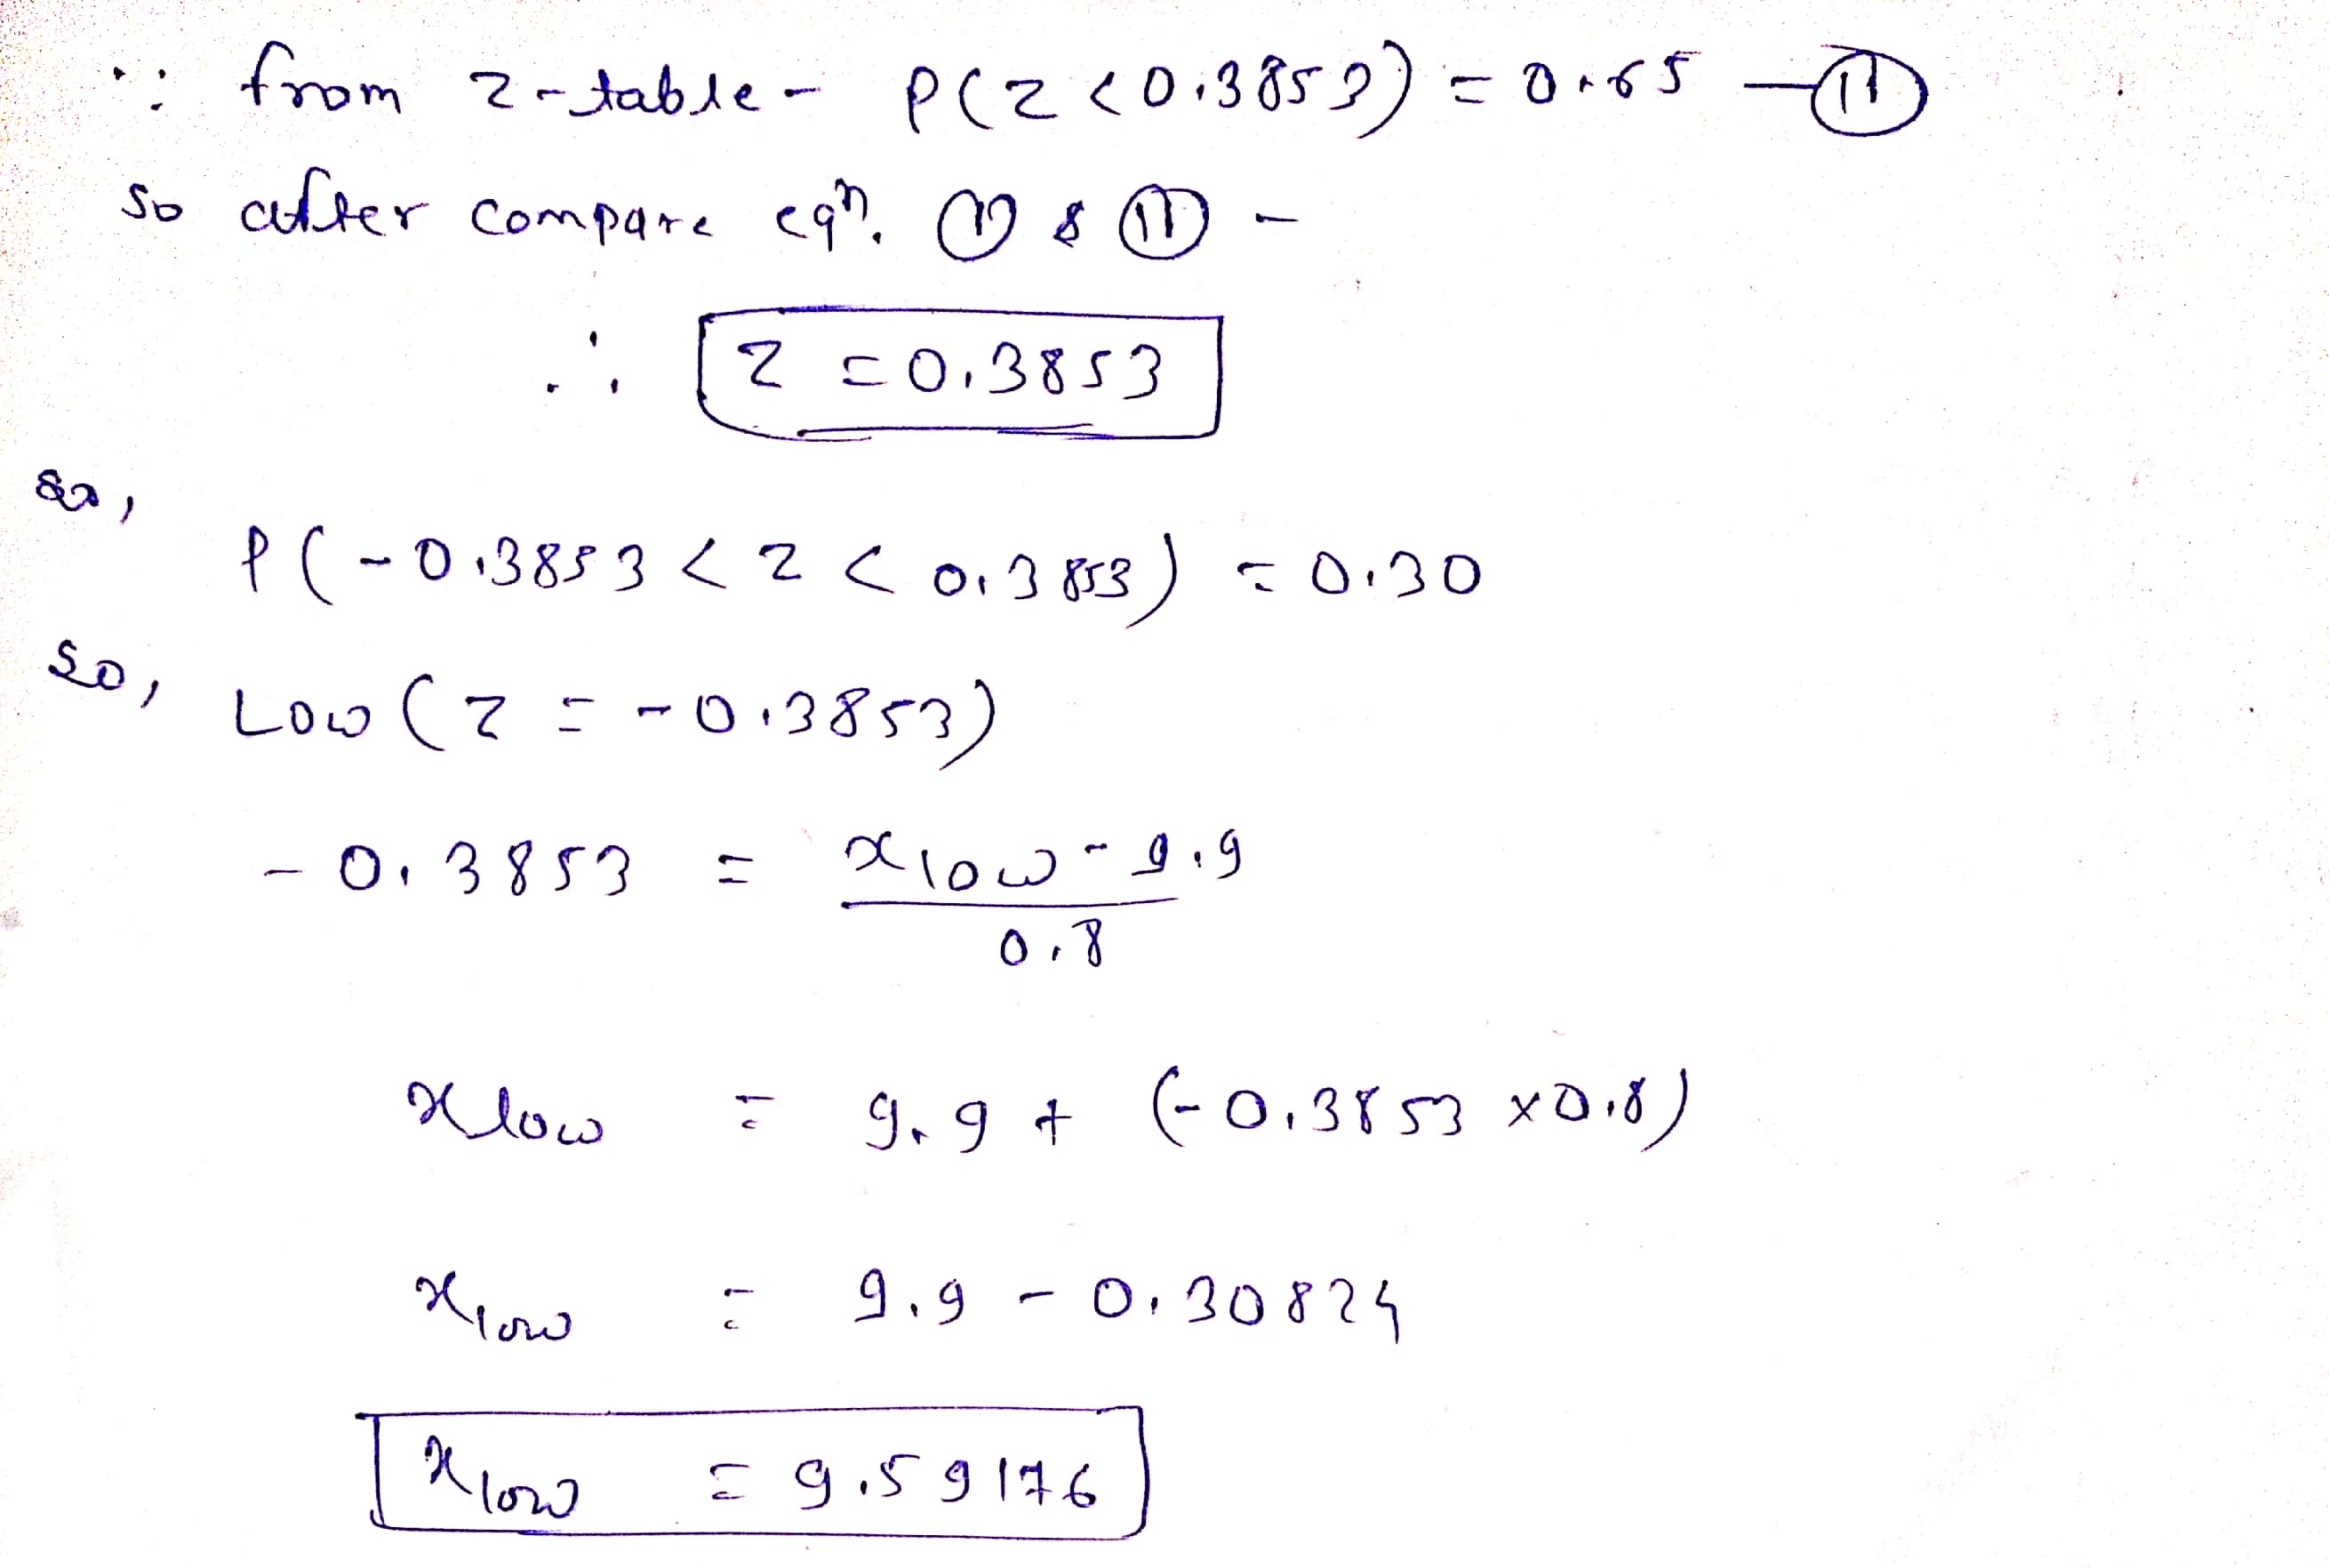 ∵ from z-table- P(z<0.3853) = 0.65 —(II)
so after compare eqn. (I) & (II) -
∴ z = 0.3853
so,
P(-0.3853 < z < 0.3853) = 0.30
so, Low (z = -0.3853)
-0.3853 = xlow - 9.9
0.8
xlow = 9.9 + (-0.3853 x0.8)
xlow = 9.9 - 0.30824
xlow = 9.59176